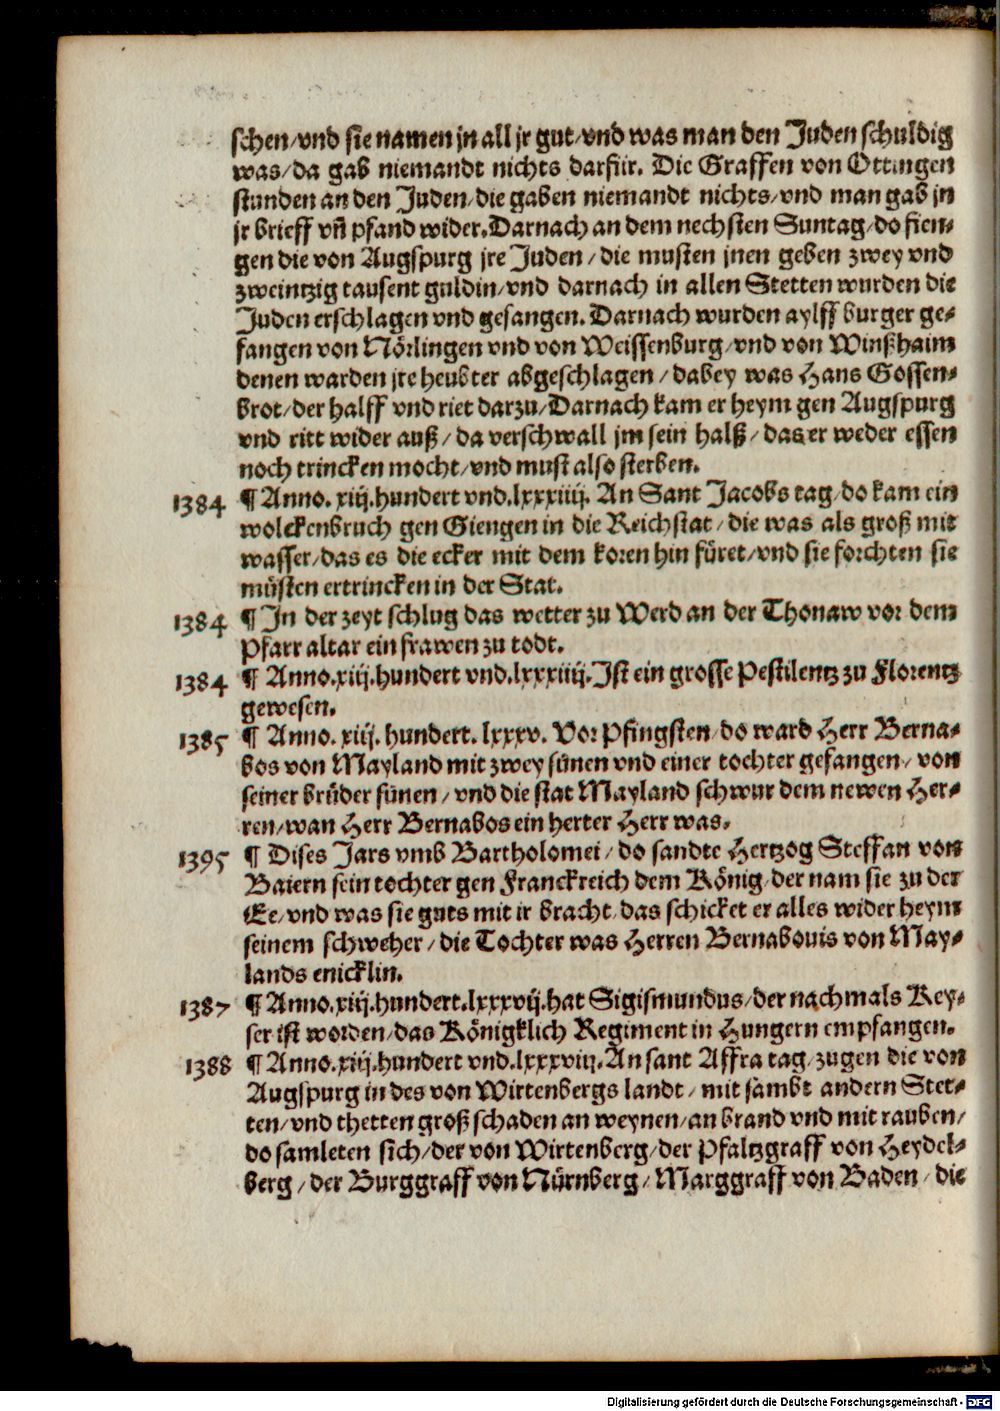 schen/vnd sie namen jn all jr gut/vnd was man den Juden schuldig
was/da gab niemandt nichts darfür. Die Graffen von Ottingen
stunden an den Juden/die gaben niemandt nichts/vnd man gab jn
jr brieff vñ pfand wider. Darnach an dem nechsten Suntag/do fien-
gen die von Augspurg jre Juden/die musten jnen geben zwey vnd
zweintzig tausent guldin/vnd darnach in allen Stetten wurden die
Juden erschlagen vnd gefangen. Darnach wurden aylff burger ge-
fangen von Nörlingen vnd von Weissenburg/vnd von Winßhaim
denen warden jre heubter abgeschlagen/dabey was Hans Gossen-
brot/der halff vnd riet darzu/Darnach kam er heym gen Augspurg
vnd ritt wider auß/da verschwall jm sein halß/das er weder essen
noch trincken mocht/vnd must also sterben.
1384 ¶ Anno. xiij.hundert vnd.lxxxiiij. An Sant Jacobs tag/do kam ein
wolckenbruch gen Giengen in die Reichstat/die was als groß mit
wasser/das es die ecker mit dem koren hin füret/vnd sie forchten sie
müsten ertrincken in der Stat.
1384 ¶ In der zeyt schlug das wetter zu Werd an der Thonaw vor dem
Pfarr altar ein frawen zu todt.
1384 ¶ Anno.xiij.hundert vnd.lxxxiiij.Ist ein grosse Pestilentz zu Florentz
gewesen.
1385 ¶ Anno. xiij. hundert. lxxxv. Vor Pfingsten/do ward Herr Berna-
bos von Mayland mit zwey sünen vnd einer tochter gefangen/von
seiner brüder sünen/vnd die stat Mayland schwur dem newen Her-
ren/wan Herr Bernabos ein herter Herr was.
1395 ¶ Dises Jars vmb Bartholomei/do sandte Hertzog Steffan von
Baiern sein tochter gen Franckreich dem König/der nam sie zu der
Ee/vnd was sie guts mit ir bracht/das schicket er alles wider heym
seinem schweher/die Tochter was Herren Bernabouis von May-
lands enicklin.
1387 ¶ Anno.xiij.hundert.lxxxvij.hat Sigismundus/der nachmals Key-
ser ist worden/das Königklich Regiment in Hungern empfangen.
1388 ¶ Anno.xiij.hundert vnd.lxxxviij.An sant Affra tag/zugen die von
Augspurg in des von Wirtenbergs landt/mit sambt andern Stet-
ten/vnd thetten groß schaden an weynen/an brand vnd mit rauben/
do samleten sich/der von Wirtenberg/der Pfaltzgraff von Heydel-
berg/der Burggraff von Nürnberg/Marggraff von Baden/die
Digitalisierung gefördert durch die Deutsche Forschungsgemeinschaft - DFG